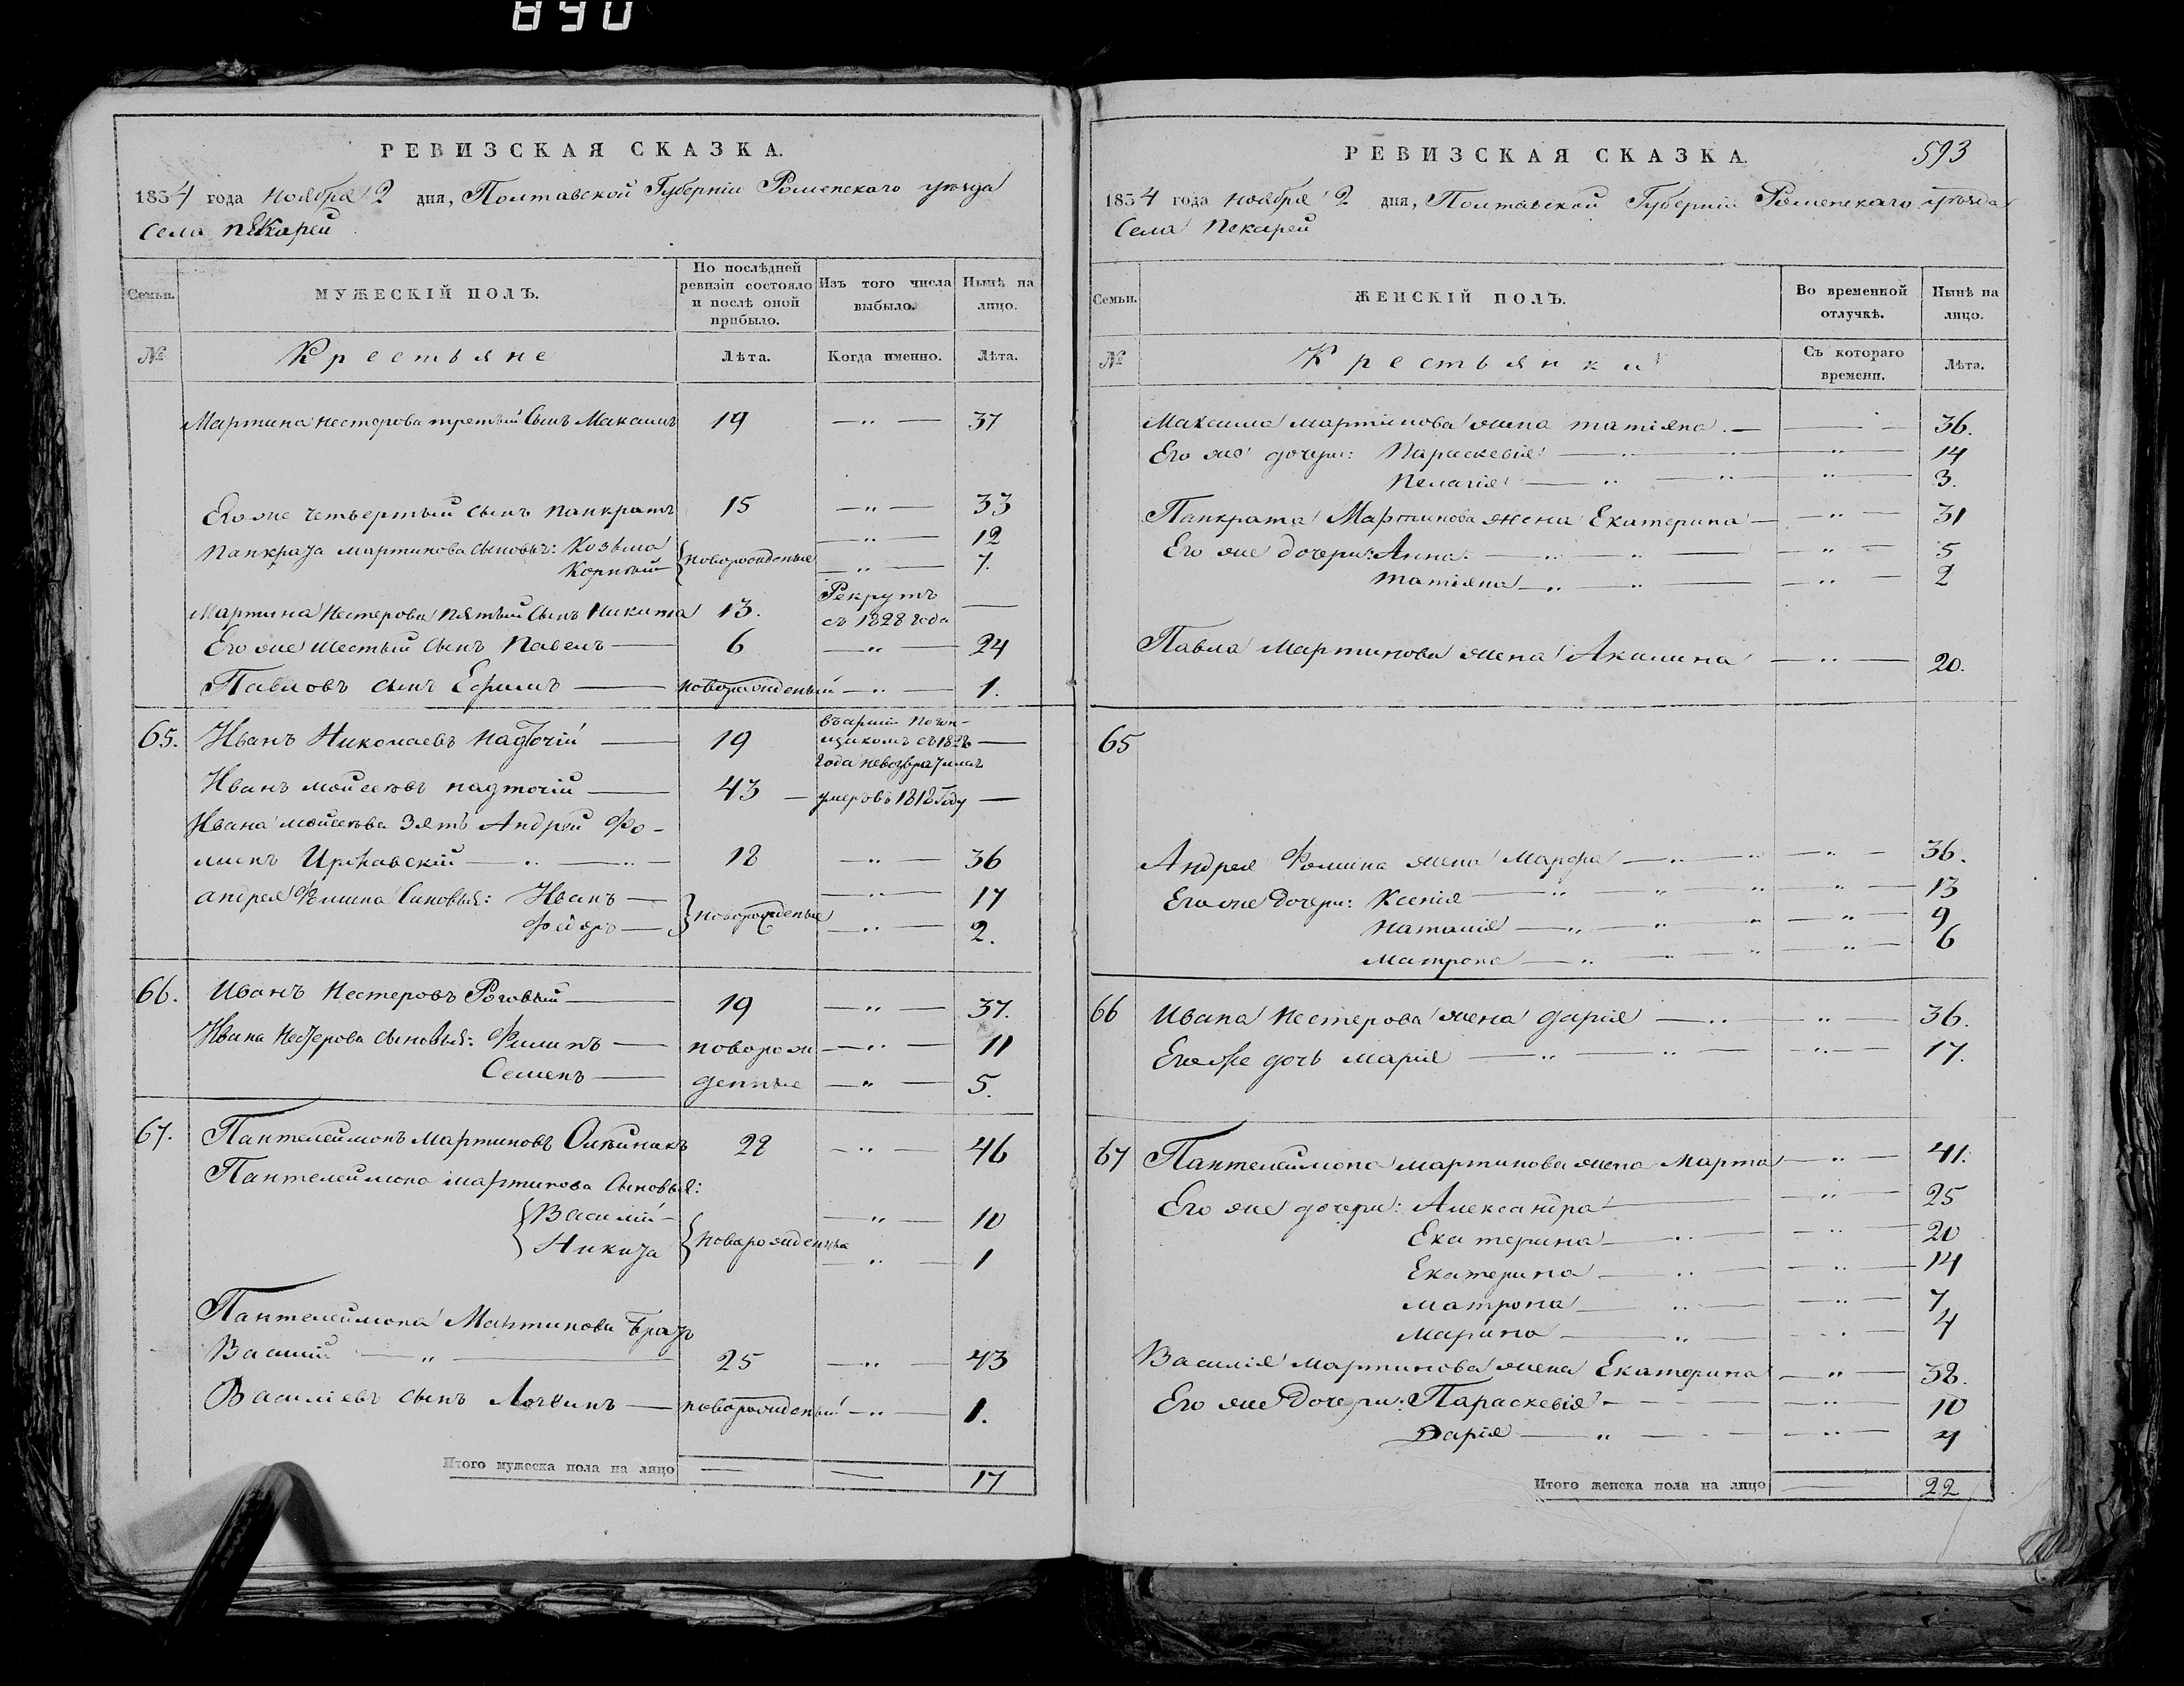 890
РЕВИЗСКАЯ СКАЗКА.
1834 года Ноября 2 дня, Полтавской Губерніи Роменскаго уѣзда
Села Пекарей
Семьи.
МУЖЕСКІЙ ПОЛЪ.
По послѣдней ревизіи состояло и послѣ оной прибыло.
Изъ того числа выбыло.
Нынѣ на лицо.
№ Крестьяне Лѣта. Когда именно. Лѣта.
Мартина Нестерова третьій Сынъ Максимъ 19 —„— 37
Его же четвертый сынъ Панкратъ 15 —„— 33
Панкрата Мартинова сыновья: Козьма —„— 12
Корнѣй новорожденые —„— 7.
Мартина Нестерова Пятый Сынъ Никита 13. Рекрутъ съ 1828 года —
Его же Шестый Сынъ Павелъ — 6 —„— 24
Павловъ сынъ Ефимъ — новорожденый —„— 1.
65. Иванъ Николаевъ Надточій — 19
въ арміи погонщикомъ съ 1828 —
года невозвратился
Иванъ Мойсеевъ Надточій — 43 — умеръ въ 1818 году —
Ивана Мойсеева Зять Андрей Фо-
минъ Иржавскій —„— 18 —„— 36
Андрея Фомина Синовья: Иванъ — —„— 17
Фёдоръ — новорожденые —„— 2.
66. Иванъ Нестеровъ Роговый — 19 —„— 37.
Ивана Нестерова Сыновья: Филипъ — новорож —„— 11
Семенъ — денные —„— 5.
67. Пантелеймонъ Мартиновъ Олѣйникъ 28 —„— 46
Пантелеймона Мартинова Сыновья:
Василій — —„— 10
Никита новорожденые —„— 1
Пантелеймона Мартинова Братъ
Василій —„— 25 —„— 43
Василіевъ сынъ Логвинъ — новорожденый —„— 1.
Итого мужеска пола на лицо — — 17
РЕВИЗСКАЯ СКАЗКА. 593
1834 года Ноября 2 дня, Полтавской Губерніи Роменскаго уѣзда
Села Пекарей
Семьи.
ЖЕНСКІЙ ПОЛЪ.
Во временной отлучкѣ.
Нынѣ на лицо.
№ Крестьянки Съ котораго времени. Лѣта.
Максима Мартинова жена Татіяна. — 36.
Его же дочери: Параскевія —„— 14
Пелагія —„— 3.
Панкрата Мартинова жена Екатерина —„— 31
Его же дочери: Анна —„— 5
Татіяна —„— 2
Павла Мартинова жена Акилина —„— 20.
65
Андрея Фомина жена Марфа —„— 36.
Его же Дочери: Ксенія —„— 13
Наталія —„— 9
Матрона —„— 6
66 Ивана Нестерова жена Дарія —„— 36.
Его же дочь Марія —„— 17.
67 Пантелеймона Мартинова жена Марта —„— 41.
Его же дочери: Александра —„— 25
Екатерина —„— 20
Екатерина —„— 14
Матрона —„— 7
Марина —„— 4
Василія Мартинова жена Екатерина —„— 38.
Его же Дочери: Параскевія —„— 10
Дарія —„— 4
Итого женска пола на лицо — 22